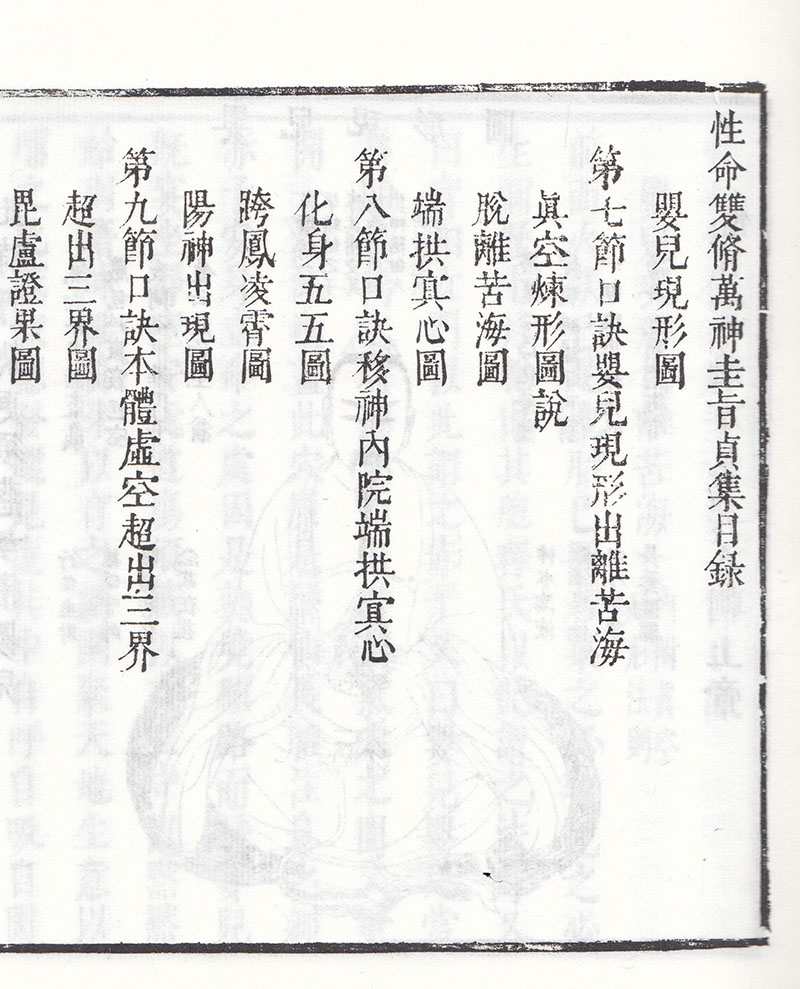 性命雙脩萬神圭旨貞集目錄
嬰兒現形圖
第七節口訣嬰兒現形出離苦海
眞空煉形圖說
脫離苦海圖
端拱寘心圖
第八節口訣移神內院端拱寘心
化身五五圖
跨鳳凌霄圖
陽神出現圖
第九節口訣本體虛空超出三界
超出三界圖
毘盧證果圖